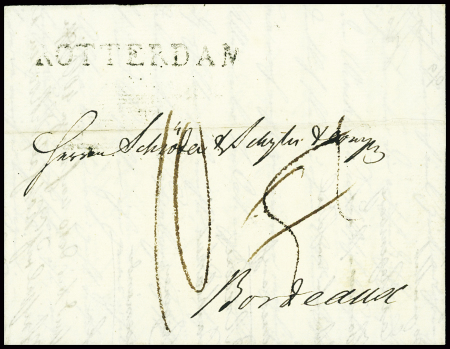 ROTTERDAM
Herren Schröder & Schyler & Comp
10
Bordeaux